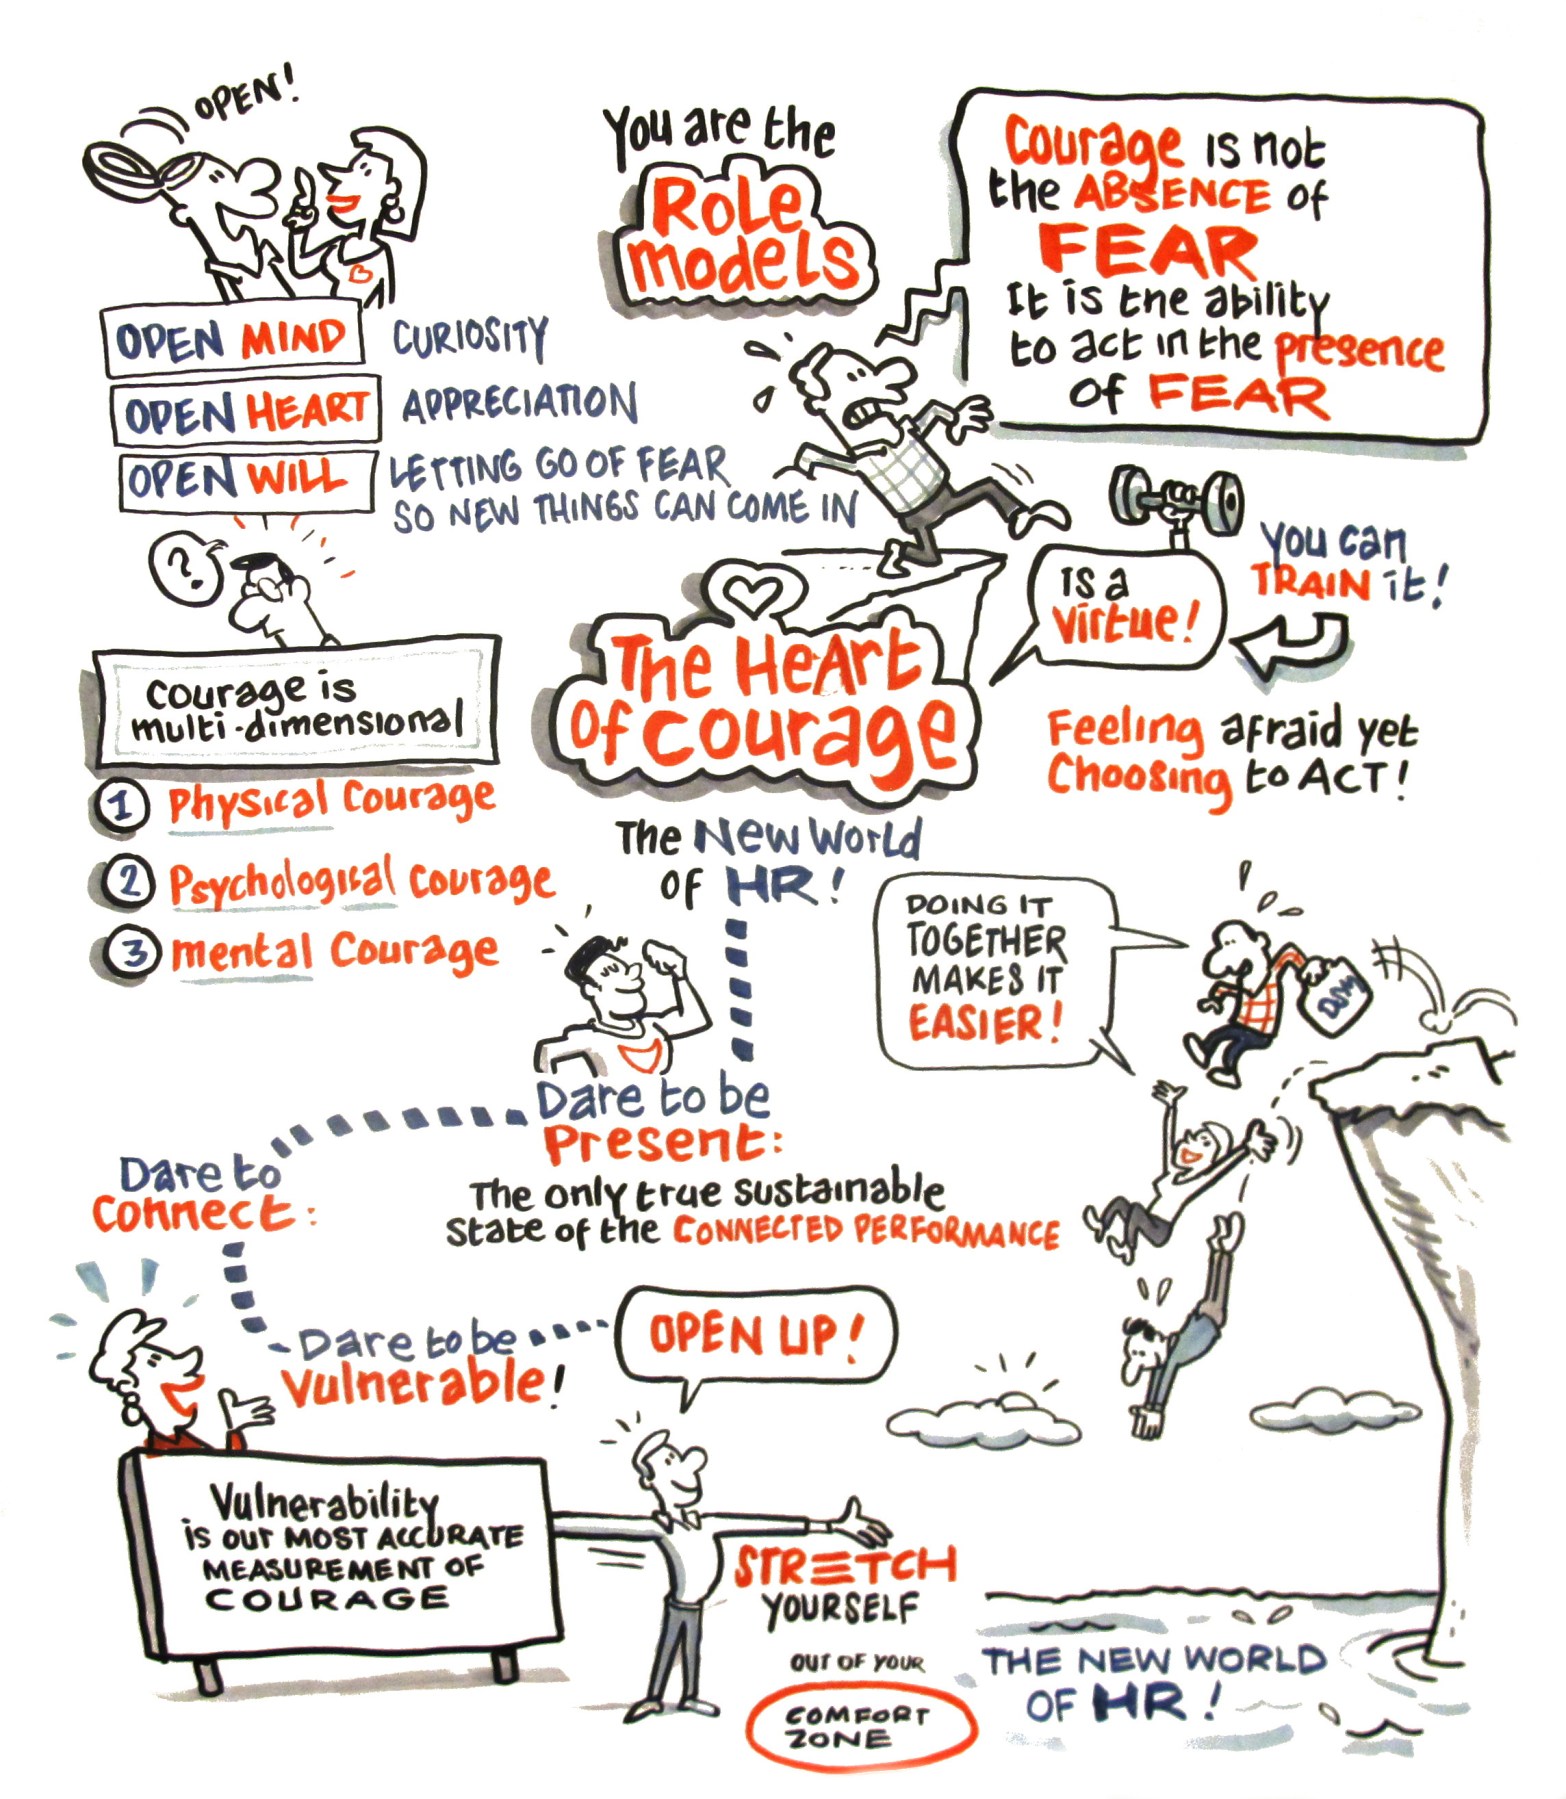 OPEN!
OPEN MIND
CURIOSITY
OPEN HEART
APPRECIATION
OPEN WILL
LETTING GO OF FEAR
SO NEW THINGS CAN COME IN
You are the
Role
models
Courage is not
the ABSENCE of
FEAR
It is the ability
to act in the presence
of FEAR
?
Courage is
multi-dimensional
1 Physical Courage
2 Psychological Courage
3 mental Courage
The Heart
of courage
is a
virtue!
You can
TRAIN it!
Feeling afraid yet
Choosing to ACT!
The New World
of HR!
DOING IT
TOGETHER
MAKES IT
EASIER!
Dare to be
Present:
The only true sustainable
state of the CONNECTED PERFORMANCE
Dare to
Connect:
Dare to be
Vulnerable!
OPEN UP!
Vulnerability
is our MOST ACCURATE
MEASUREMENT OF
COURAGE
STRETCH
YOURSELF
OUT OF YOUR
COMFORT
ZONE
THE NEW WORLD
OF HR!